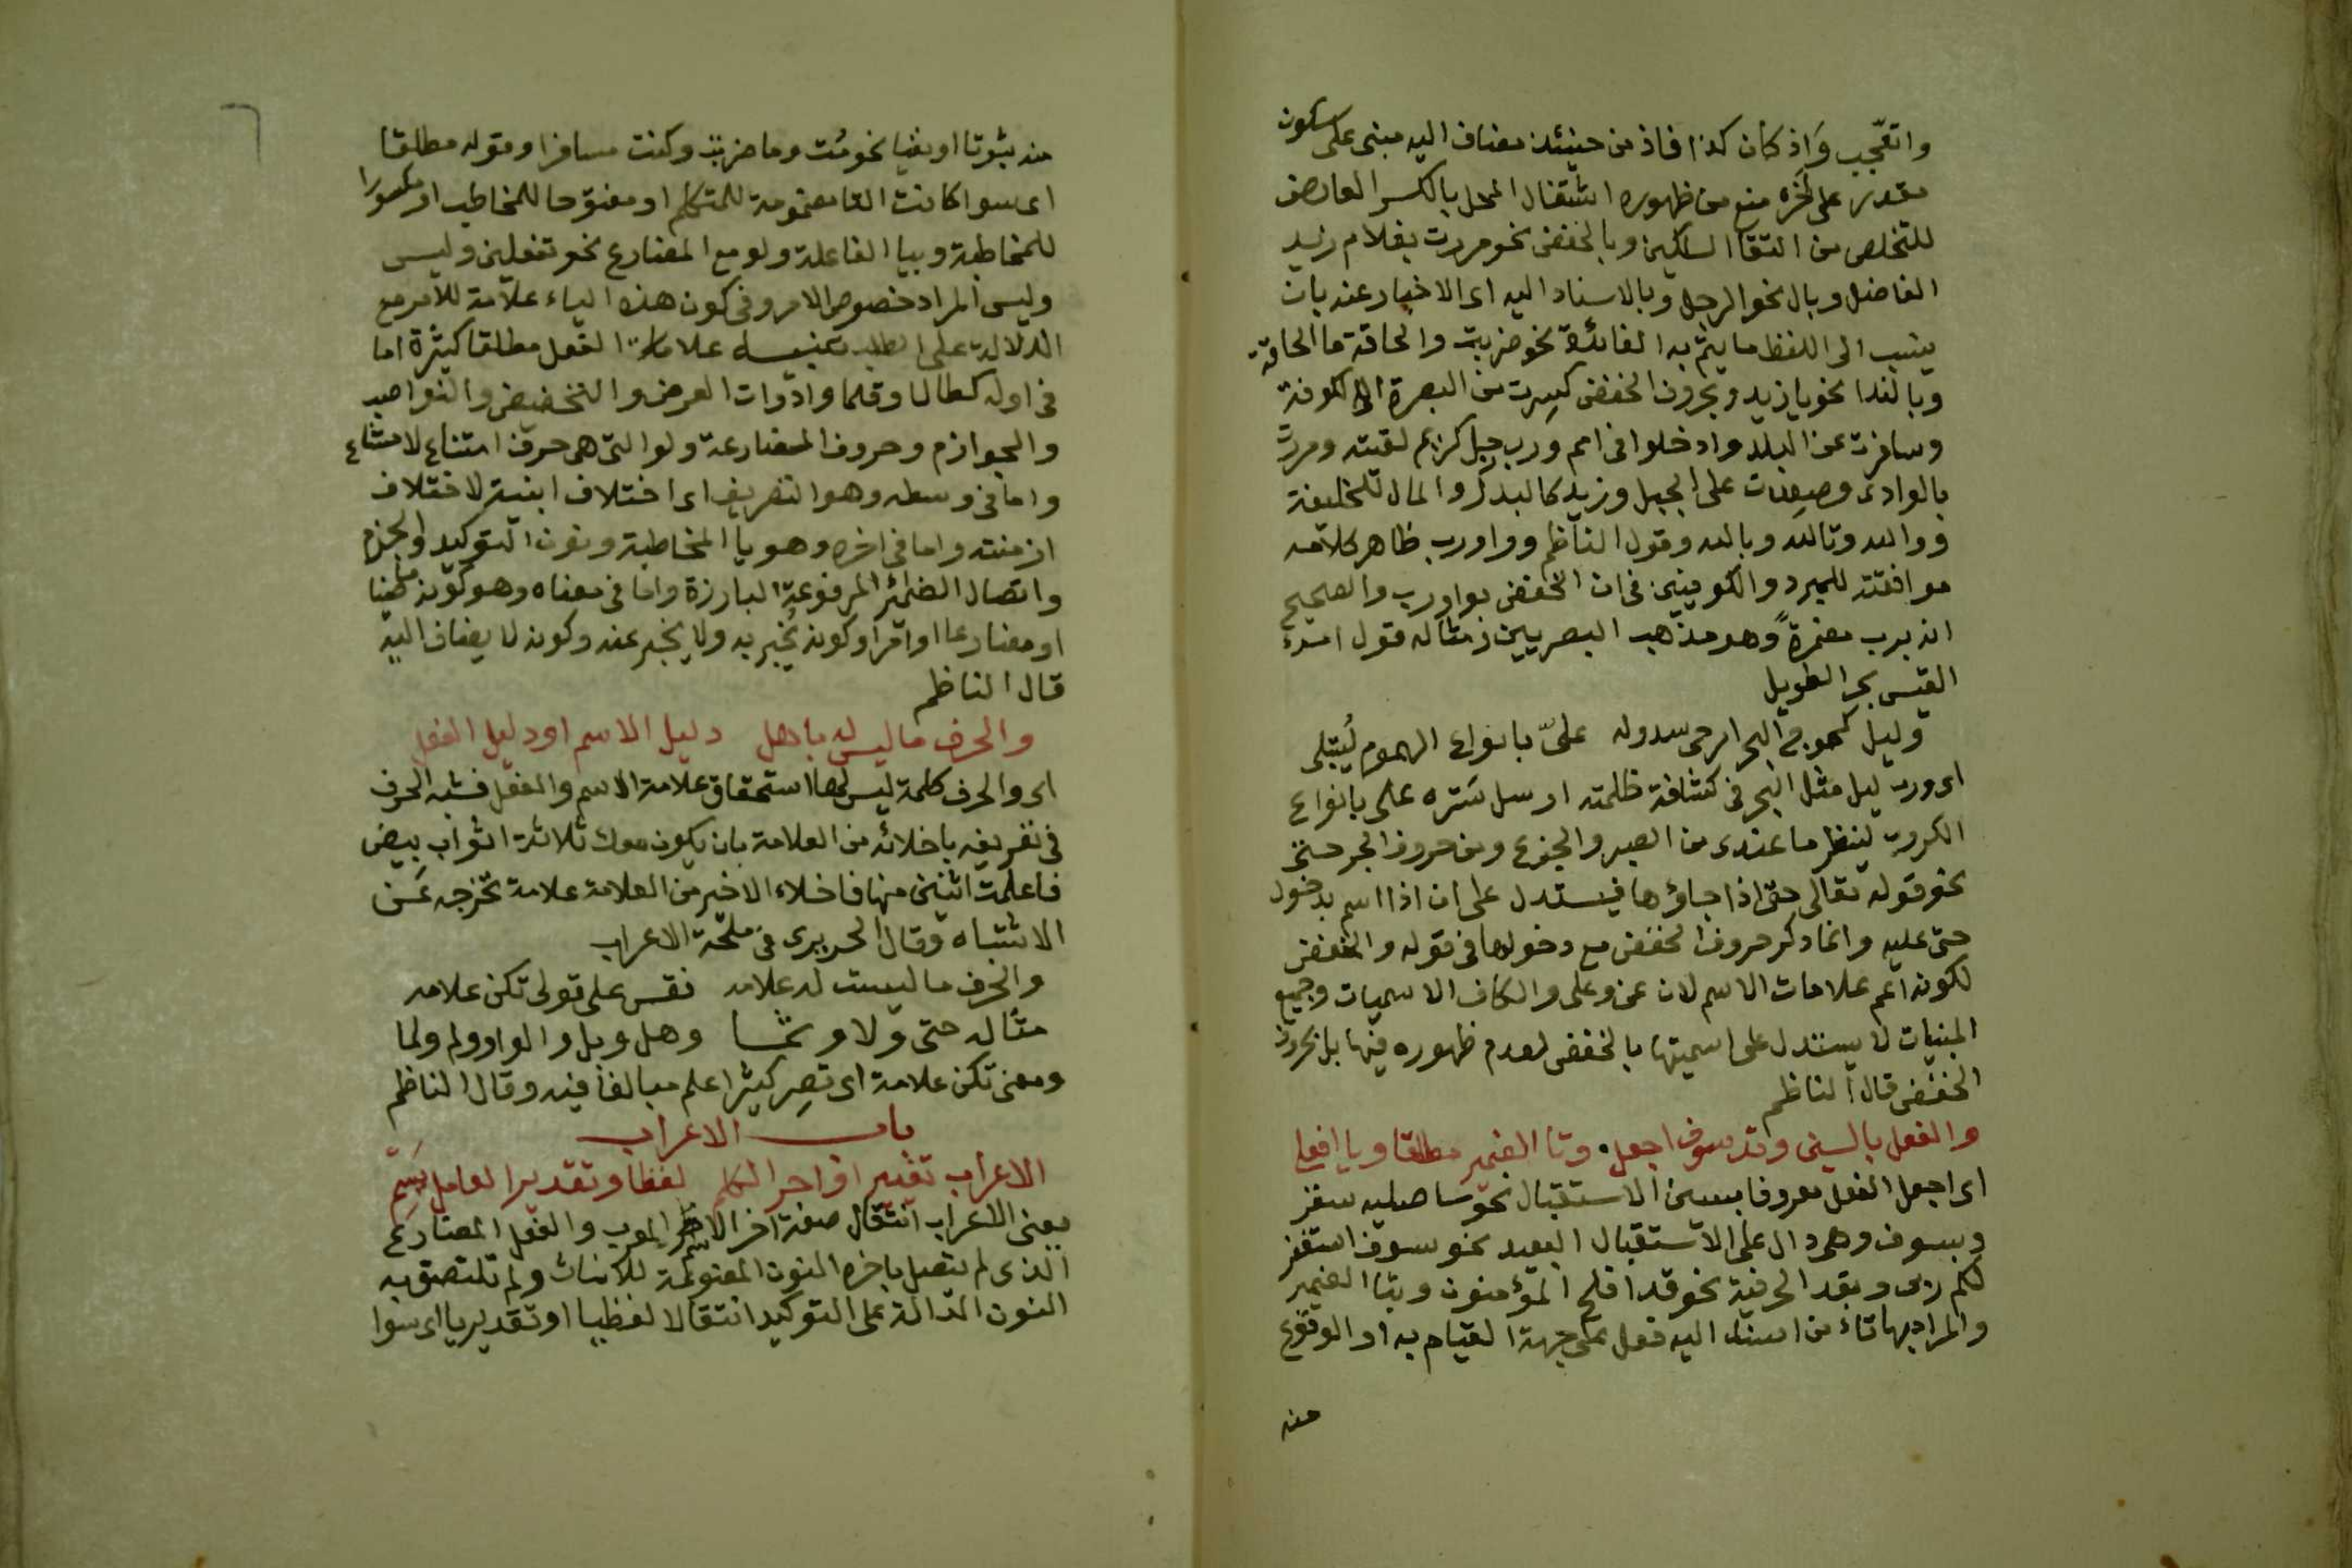 واتعجب واذ كان كذا فاذ من حينئذ مضاف اليه مبنى على سكون
مقدر على آخره منع من ظهوره اشتغال المحل بالكسر العارض
للتخلص من التقا الساكنين وبالخفض نحو مررت بغلام زيد
الفاضل وبال نحو الرجل وبالاسناد اليه اى الاخبار عنه بان
ينسب الى اللفظ ما يتم به الفائدة نحو ضربت والحاقة ما الحاقة
وبالندا نحو يا زيد وبحروف الخفض كسرت من البصرة الى الكوفة
وسافرت عن البلد وادخلوا فى امم ورب رجل كريم لقيته ومررت
بالوادى وصعدت على الجبل وزيد كالبدر والمال للخليفة
ووالله وتالله وبالله وقول الناظم وواو رب ظاهر كلامه
موافقته للمبرد والكوفيين فى ان الخفض بواو رب والصحيح
انه برب مضمرة وهو مذهب البصريين ومثاله قول امرء
القيس بحر الطويل
وليل كموج البحر ارخى سدوله على بانواع الهموم ليبتلى
اى ورب ليل مثل البحر فى كثافة ظلمته ارسل ستره على بانواع
الكروب لينظر ما عندى من الصبر والجزع ومن حروف الجر حتى
نحو قوله تعالى حتى اذا جاؤها فيستدل على ان اذا اسم بدخول
حتى عليه وانما ذكر حروف الخفض مع دخولها فى قوله والخفض
لكونه اعم علامات الاسم لان عن وعلى والكاف الاسميات وجميع
المبنيات لا يستدل على اسميتها بالخفض لعدم ظهوره فيها بل بحروف
الخفض قال الناظم
والفعل بالسين وقد سوف اجعل وتا الضمير مطلقا ويا افعلى
اى اجعل الفعل معروفا بسين الاستقبال نحو ساصليه سقر
وبسوف وهى دال على الاستقبال البعيد نحو سوف استغفر
لكم ربى وبقد الحرفية نحو قد افلح المؤمنون وبتا الضمير
والمراد بها تاء من اسند اليه فعل على جهة القيام به او الوقوع
منه
منه ثبوتا او نفيا نحو قمت وما ضربت وكنت مسافرا وقوله مطلقا
اى سوا كانت التا مضمومة للمتكلم او مفتوحا للمخاطب او مكسورا
للمخاطبة وبيا الفاعلة ولو مع المضارع نحو تفعلين وليس
وليس المراد خصوص الامر وفى كون هذه الياء علامة للامر مع
الدلالة على الطلب تنبيه علامات الفعل مطلقا كثيرة اما
فى اوله كطالما وقلما وادوات العرض والتخضيض والنواصب
والجوازم وحروف المضارعة ولو التى هى حرف امتناع لامتناع
واما فى وسطه وهو التصريف اى اختلاف ابنيته لاختلاف
ازمنته واما فى اخره وهو يا المخاطبة ونون التوكيد والجزم
واتصال الضمائر المرفوعة البارزة واما فى معناه وهو كونه ماضيا
او مضارعا او امرا وكونه يخبر به ولا يخبر عنه وكونه لا يضاف اليه
قال الناظم
والحرف ما ليس له يا هل دليل الاسم او دليل الفعل
اى والحرف كلمة ليس لها استحقاق علامة الاسم والفعل فشبه الحرف
فى تعريفه باخلائه من العلامة بان يكون معك ثلاثة اثواب بيض
فاعلمت اثنين منها فاخلاء الاخير من العلامة علامة تخرجه عن
الاشتباه وقال الحريرى فى ملحة الاعراب
والحرف ما ليست له علامه فقس على قولى تكن علامه
مثاله حتى ولا وثما وهل وبل والواو ولم ولما
ومعنى تكن علامة اى تصر كثير اعلم مبالغا فيه وقال الناظم
باب الاعراب
الاعراب تغيير اواخر الكلم لفظا وتقديرا لعامل يسم
يعنى الاعراب انتقال صفة اخر الاسم المعرب والفعل المضارع
الذى لم يتصل باخره النون المضمومة للاناث ولم تلتصق به
النون الدالة على التوكيد انتقالا لفظيا او تقديريا اى سوا